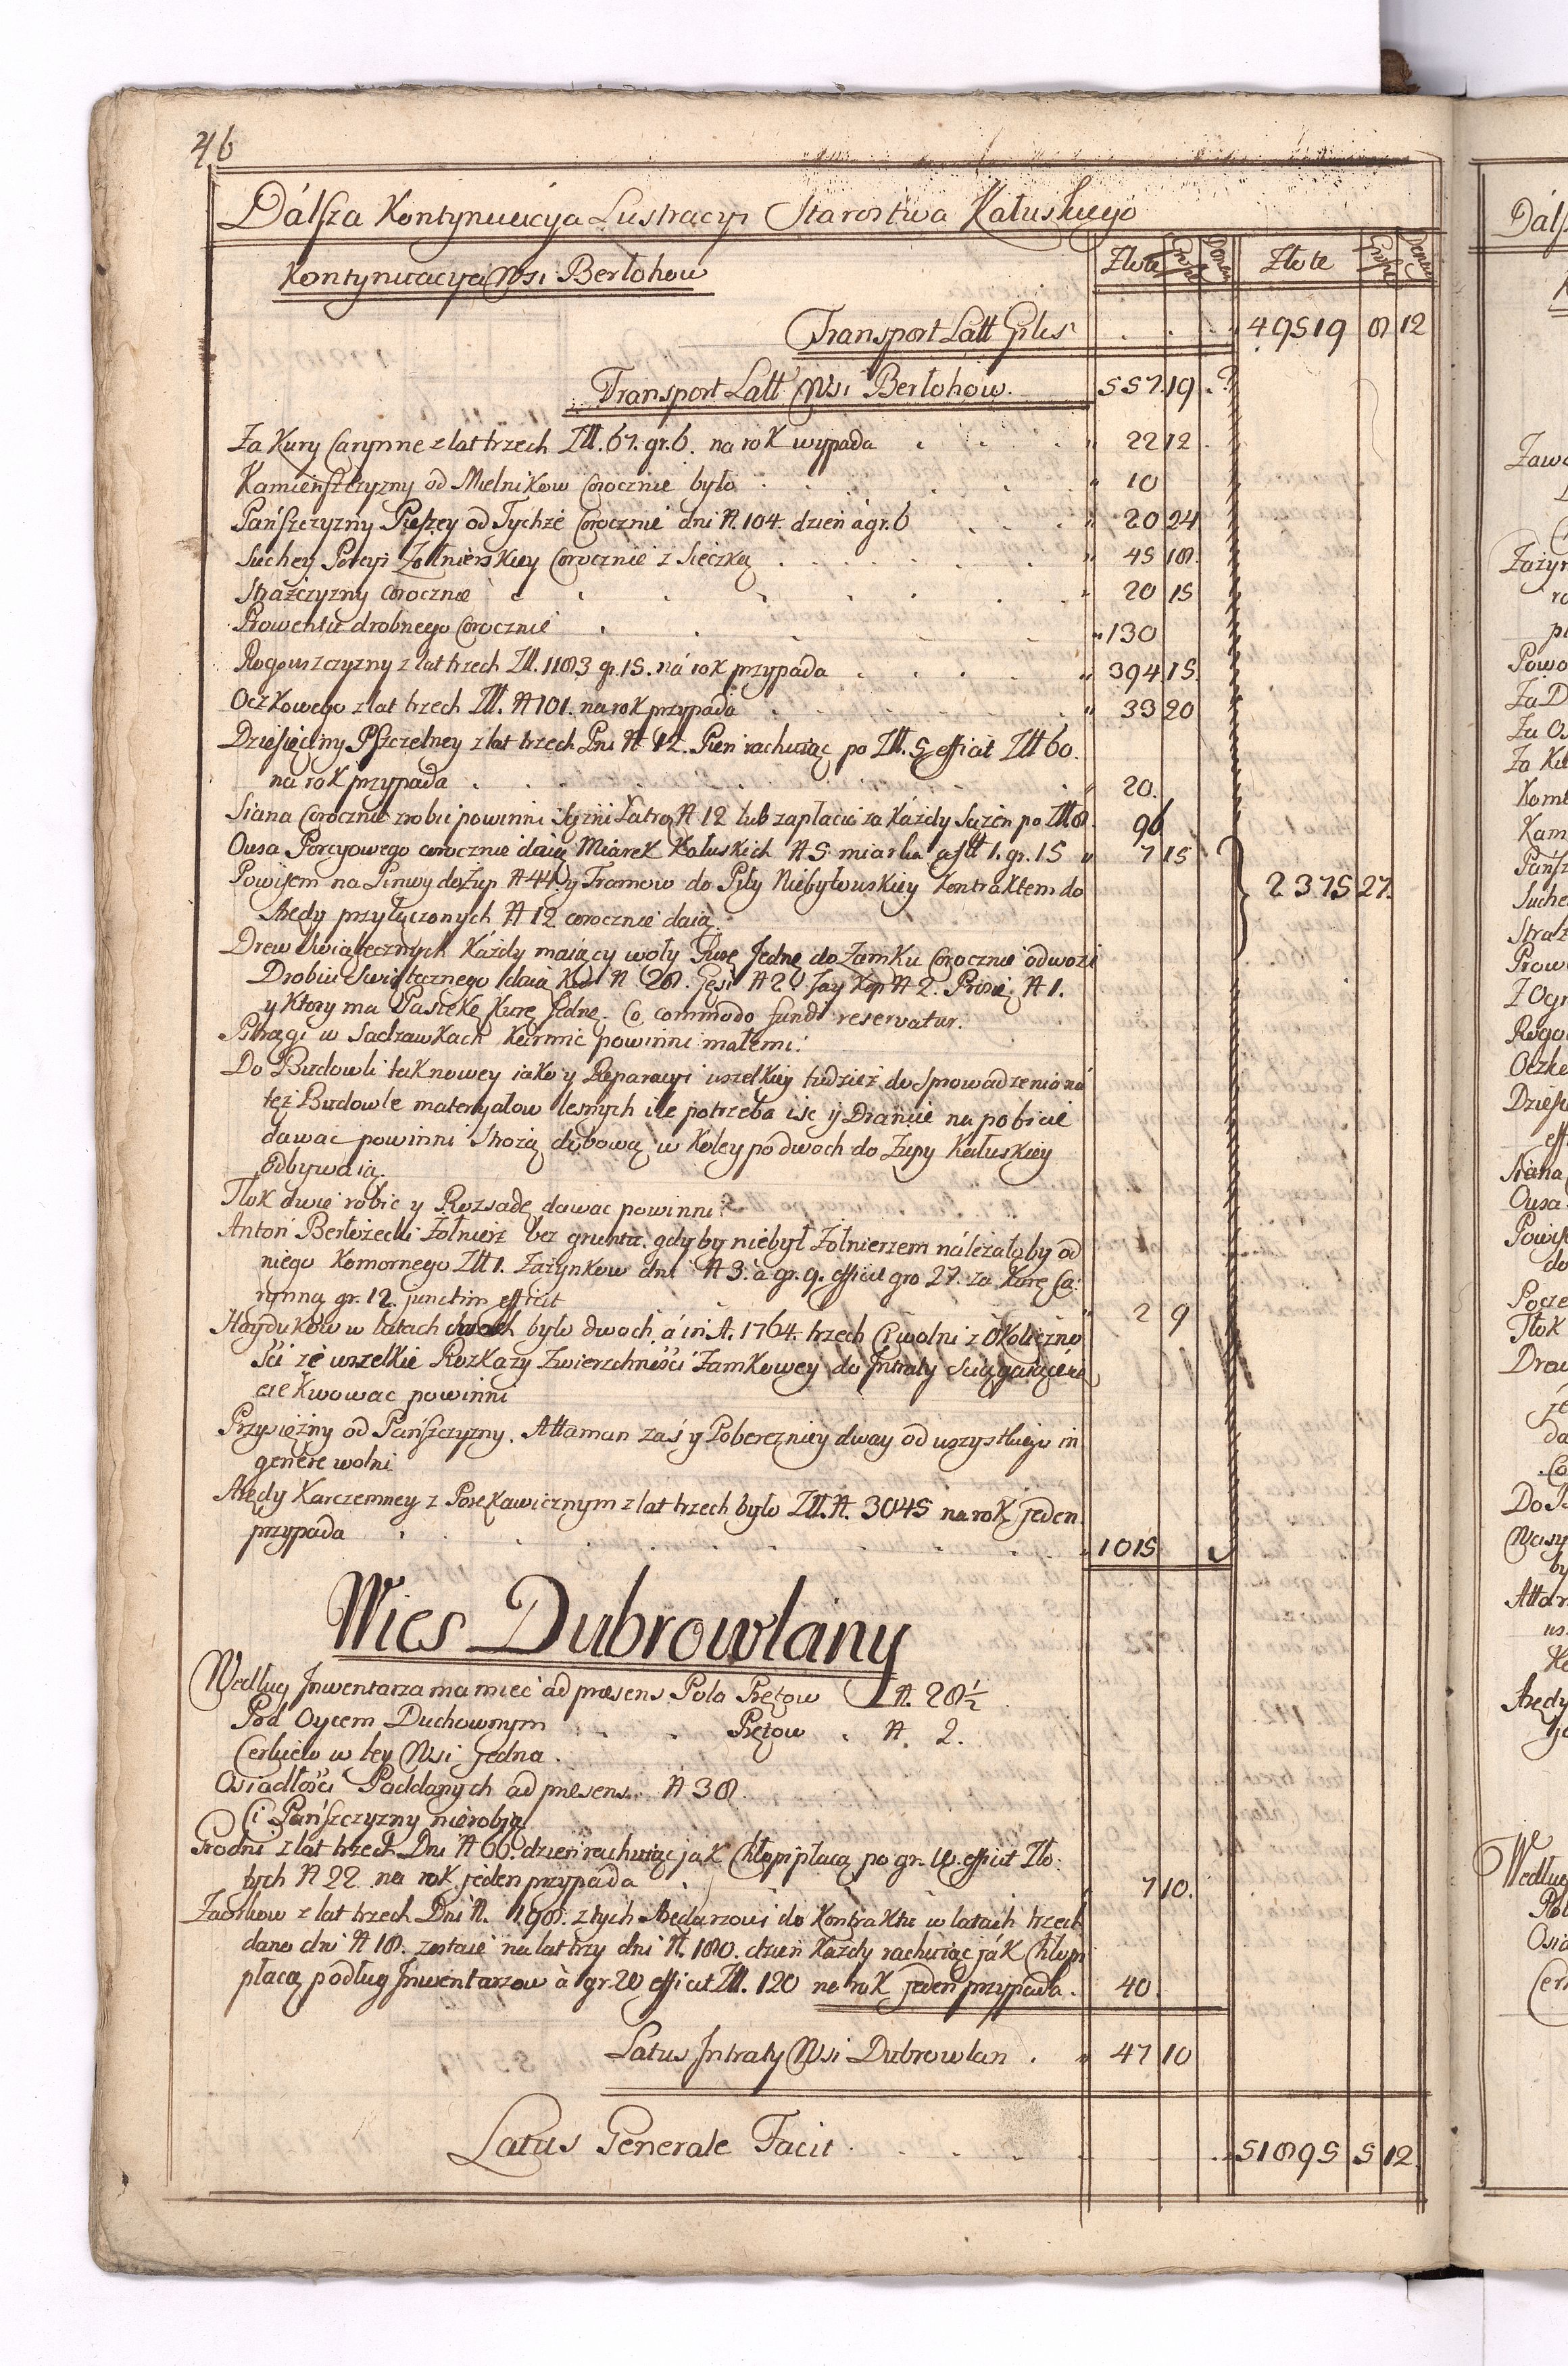 46
Dalsza Kontynuacya Lustracyi Starostwa Kałuskiego
Kontynuacya Wsi Berłohow
Złote Grosze Denar Złote Grosze Denar
Transport Latt Gnlis . . . 49519 8 12
Transport Latt Wsi Berłohow. 557. 19.
Za Kury Carynne z lat trzech Złł. 67. gr. 6. na rok wypada " 22 12.
Kamieńszczyzny od Mielnikow Corocznie było " 10
Pańszczyzny Pieszey od Tychże Corocznie dni N. 104. dzień a gr. 6 " 20 24
Suchey Porcyi Żołnierskiey Corocznie z Sieczką " 45 18.
Strażczyzny Corocznie " 20 15
Prowentu drobnego Corocznie " 130
Rogowszczyzny z lat trzech Złł. 1183 gr. 15. na rok przypada " 394 15.
Oczkowego z lat trzech Złł. N 101. na rok przypada " 33 20
Dziesięciny Pszczelney z lat trzech Pni N. 12. Pień rachuiąc po Złł. 5 efficit Złł 60.
na rok przypada " 20.
Siana Corocznie zrobić powinni Sążni Łatro N 12 lub zapłacić za Każdy Sążeń po Złł 8. 96
Owsa Porcyowego corocznie daią Miarek Kałuskich N 5 miarka a złł 1. gr. 15 " 7 15
Powisem na Linwy do Żup N 44. y Tramow do Piły Niebyłowskiey Kontraktem do 2375 27.
Arędy przyłączonych N 12 corocznie daią.
Drew Swiątecznych Każdy maiący woły Furę Jedną do Zamku Corocznie odwozi
Drobiu Swiątecznego daią Kur N 28. Gęsi N 2. Jay Kop N 2. Prosię N 1.
y Ktory ma Pasiekę Kurę Jedną. Co commodo fundi reservatur.
Pstrągi w Sadzawkach karmić powinni małemi.
Do Budowli tak nowey iako y Reparacyi wszelkiey tudzież do Sprowadzenia na
też Budowle materyałow lesnych ile potrzeba isc y Dranice na pobicie
dawac powinni Strożą dębową w Koley po dwoch do Żupy Kałuskiey
odbywaią.
Tłok dwie robic y Rozsadę dawac powinni.
Antoń Berłożecki Żołnierz bez gruntu. gdyby niebył Żołnierzem należałoby od
niego Komornego Złł 1. Zażynkow dni N 3. à gr. 9. efficit gro 27. za Kurę Ca:
rynną gr. 12. junctim efficit " 2 9
Haydukow w latach dwoch było dwoch, á in A. 1764. trzech Ci wolni z Okoliczno
ści że wszelkie Rozkazy Zwierzchności Zamkowey do Intraty Sciągaiące
exekwowac powinni
Przysiężny od Pańszczyzny. Attaman zaś y Pobereżniey dway od wszystkiego in
genere wolni
Arędy Karczemney z Porękawicznym z lat trzech było Złł. N. 3045 na rok jeden
przypada " 1015
Wies Dubrowlany
Według Inwentarza ma mieć ad præsens Pola Prętow N. 28½
Pod Oycem Duchownym Prętow N. 2.
Cerkiew w tey Wsi Jedna.
Osiadłości Paddanych ad præsens. N 38.
Ci Pańszczyzny nierobią
Grodni z lat trzech Dni N 66. dzień rachuiąc jak Chłopi płacą po gr. 10. efficit Zło:
tych N 22 na rok jeden przypada " 7 10.
Zaorkow z lat trzech Dni N. 198. z tych Arędarzowi do Kontraktu w latach trzech
dano dni N 18. zostaie na lat trzy dni N. 180. dzień Każdy rachuiąc jak Chłopi
płacą podług Inwentarzow à gr. 20 efficit Złł. 120 na rok jeden przypada. 40.
Latus Intraty Wsi Dubrowlan . " 47 10
Latus Generale Facit 51895 5 12.